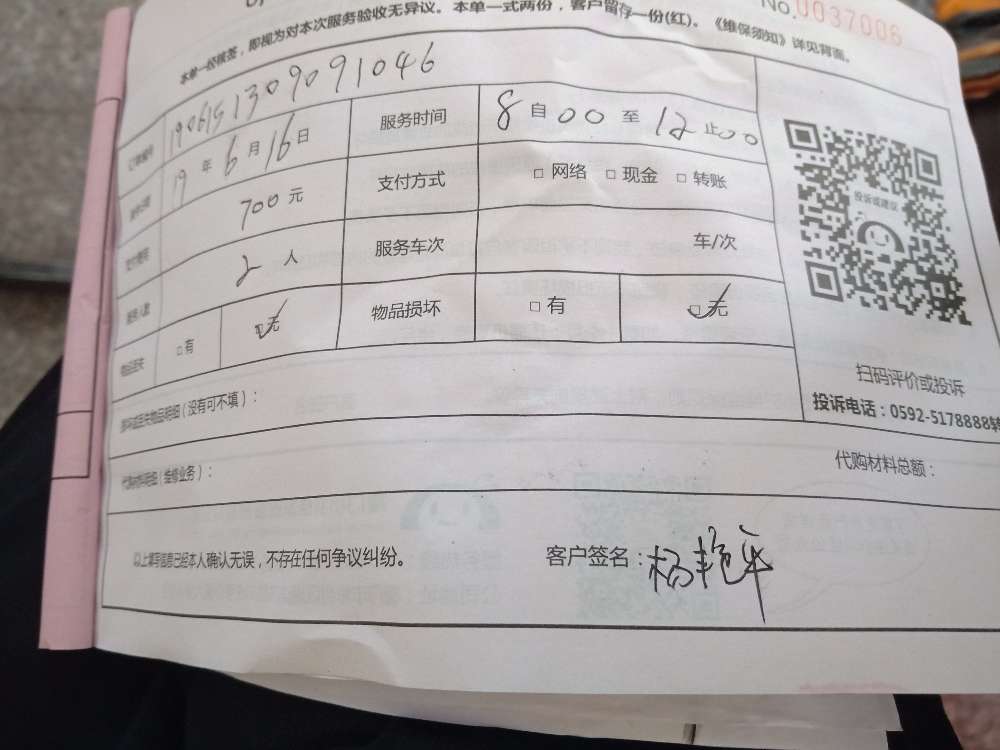 No.0037006
本单一经核签，即视为对本次服务验收无异议。本单一式两份，客户留存一份(红)。《维保须知》详见背面。
订单编号 1906151309091046
19 年 6 月 16 日 服务时间 8 自 00 至 12 止 00
700 元 支付方式 □ 网络 □ 现金 □ 转账
服务人数 2 人 服务车次 车/次
物品丢失 □ 有 □ 无 物品损坏 □ 有 □ 无
投诉或建议
扫码评价或投诉
投诉电话：0592-5178888转
损坏或丢失物品明细（没有可不填）：
代购材料明细（维修业务）： 代购材料总额：
以上填写信息已经本人确认无误，不存在任何争议纠纷。 客户签名：杨艳平